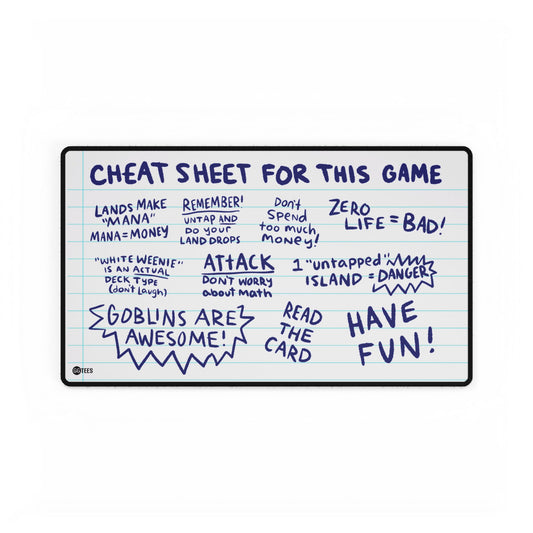 CHEAT SHEET FOR THIS GAME
LANDS MAKE
"MANA"
MANA=MONEY
REMEMBER!
UNTAP AND
DO YOUR
LAND DROPS
Don't
Spend
too much
money!
ZERO
LIFE = BAD!
"WHITE WEENIE"
IS AN ACTUAL
DECK TYPE
(don't LAUGH)
AttACK
DON'T WORRY
about MATH
1 "untapped"
ISLAND = DANGER
GOBLINS ARE
AWESOME!
READ
THE
CARD
HAVE
FUN!
GGTEES